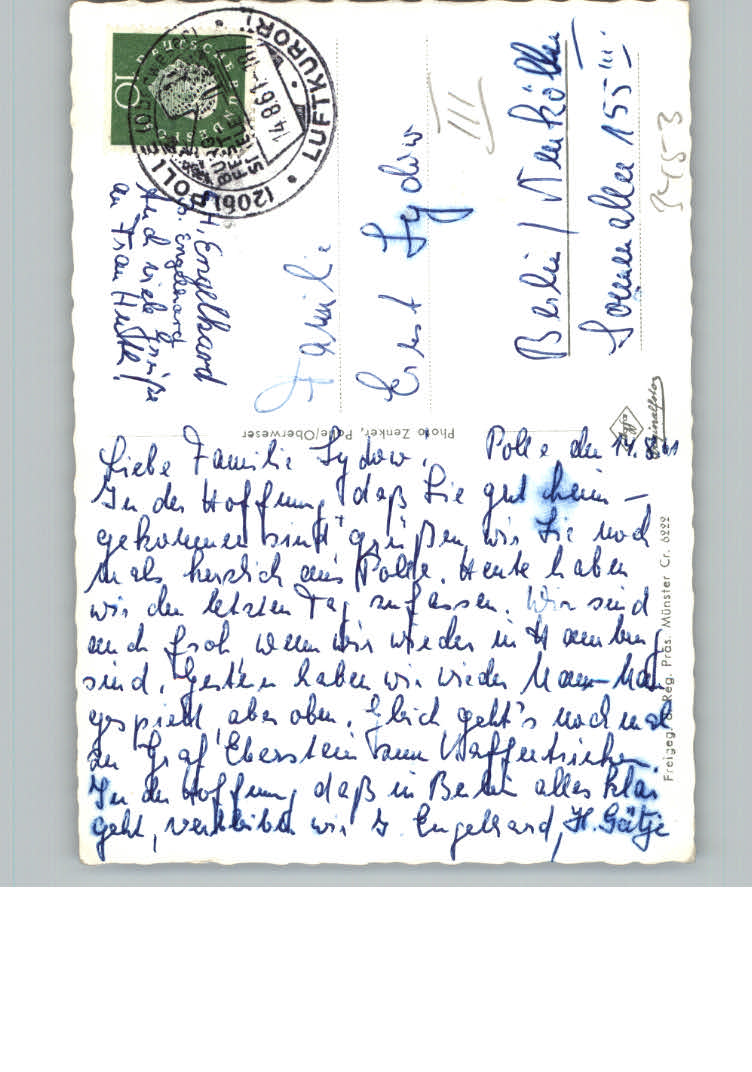 Liebe Familie Sydow, Polle den 14.8.61
In der Hoffnung daß Sie gut heim-
gekommen sind grüßen wir Sie noch
mals herzlich aus Polle. Heute haben
wir den letzten Tag zufassen. Wir sind
auch froh wenn wir wieder in Hamburg
sind. Gestern haben wir wieder Mau-Mau
gespielt, aber oben. Gleich geht's noch mal
zu Graf Eberstein zum Kaffeetrinken.
In der Hoffnung daß in Berlin alles klar
geht, verbleiben wir I. Engelhard, H. Götje
H. Engelhard
S. Engelhard
Auch viele Grüße
an Frau Hutte!
Familie
Ernst Sydow
Berlin / Neukölln
Sonnenallee 155 III
III
3453
DEUTSCHE BUNDESPOST
10
(20b) POLLE
LUFTKURORT
14.8.61
Photo Zenker, Polle/Oberweser
Agfa
Originalfoto
Freigeg. d. Reg. Präs. Münster Cr. 6222